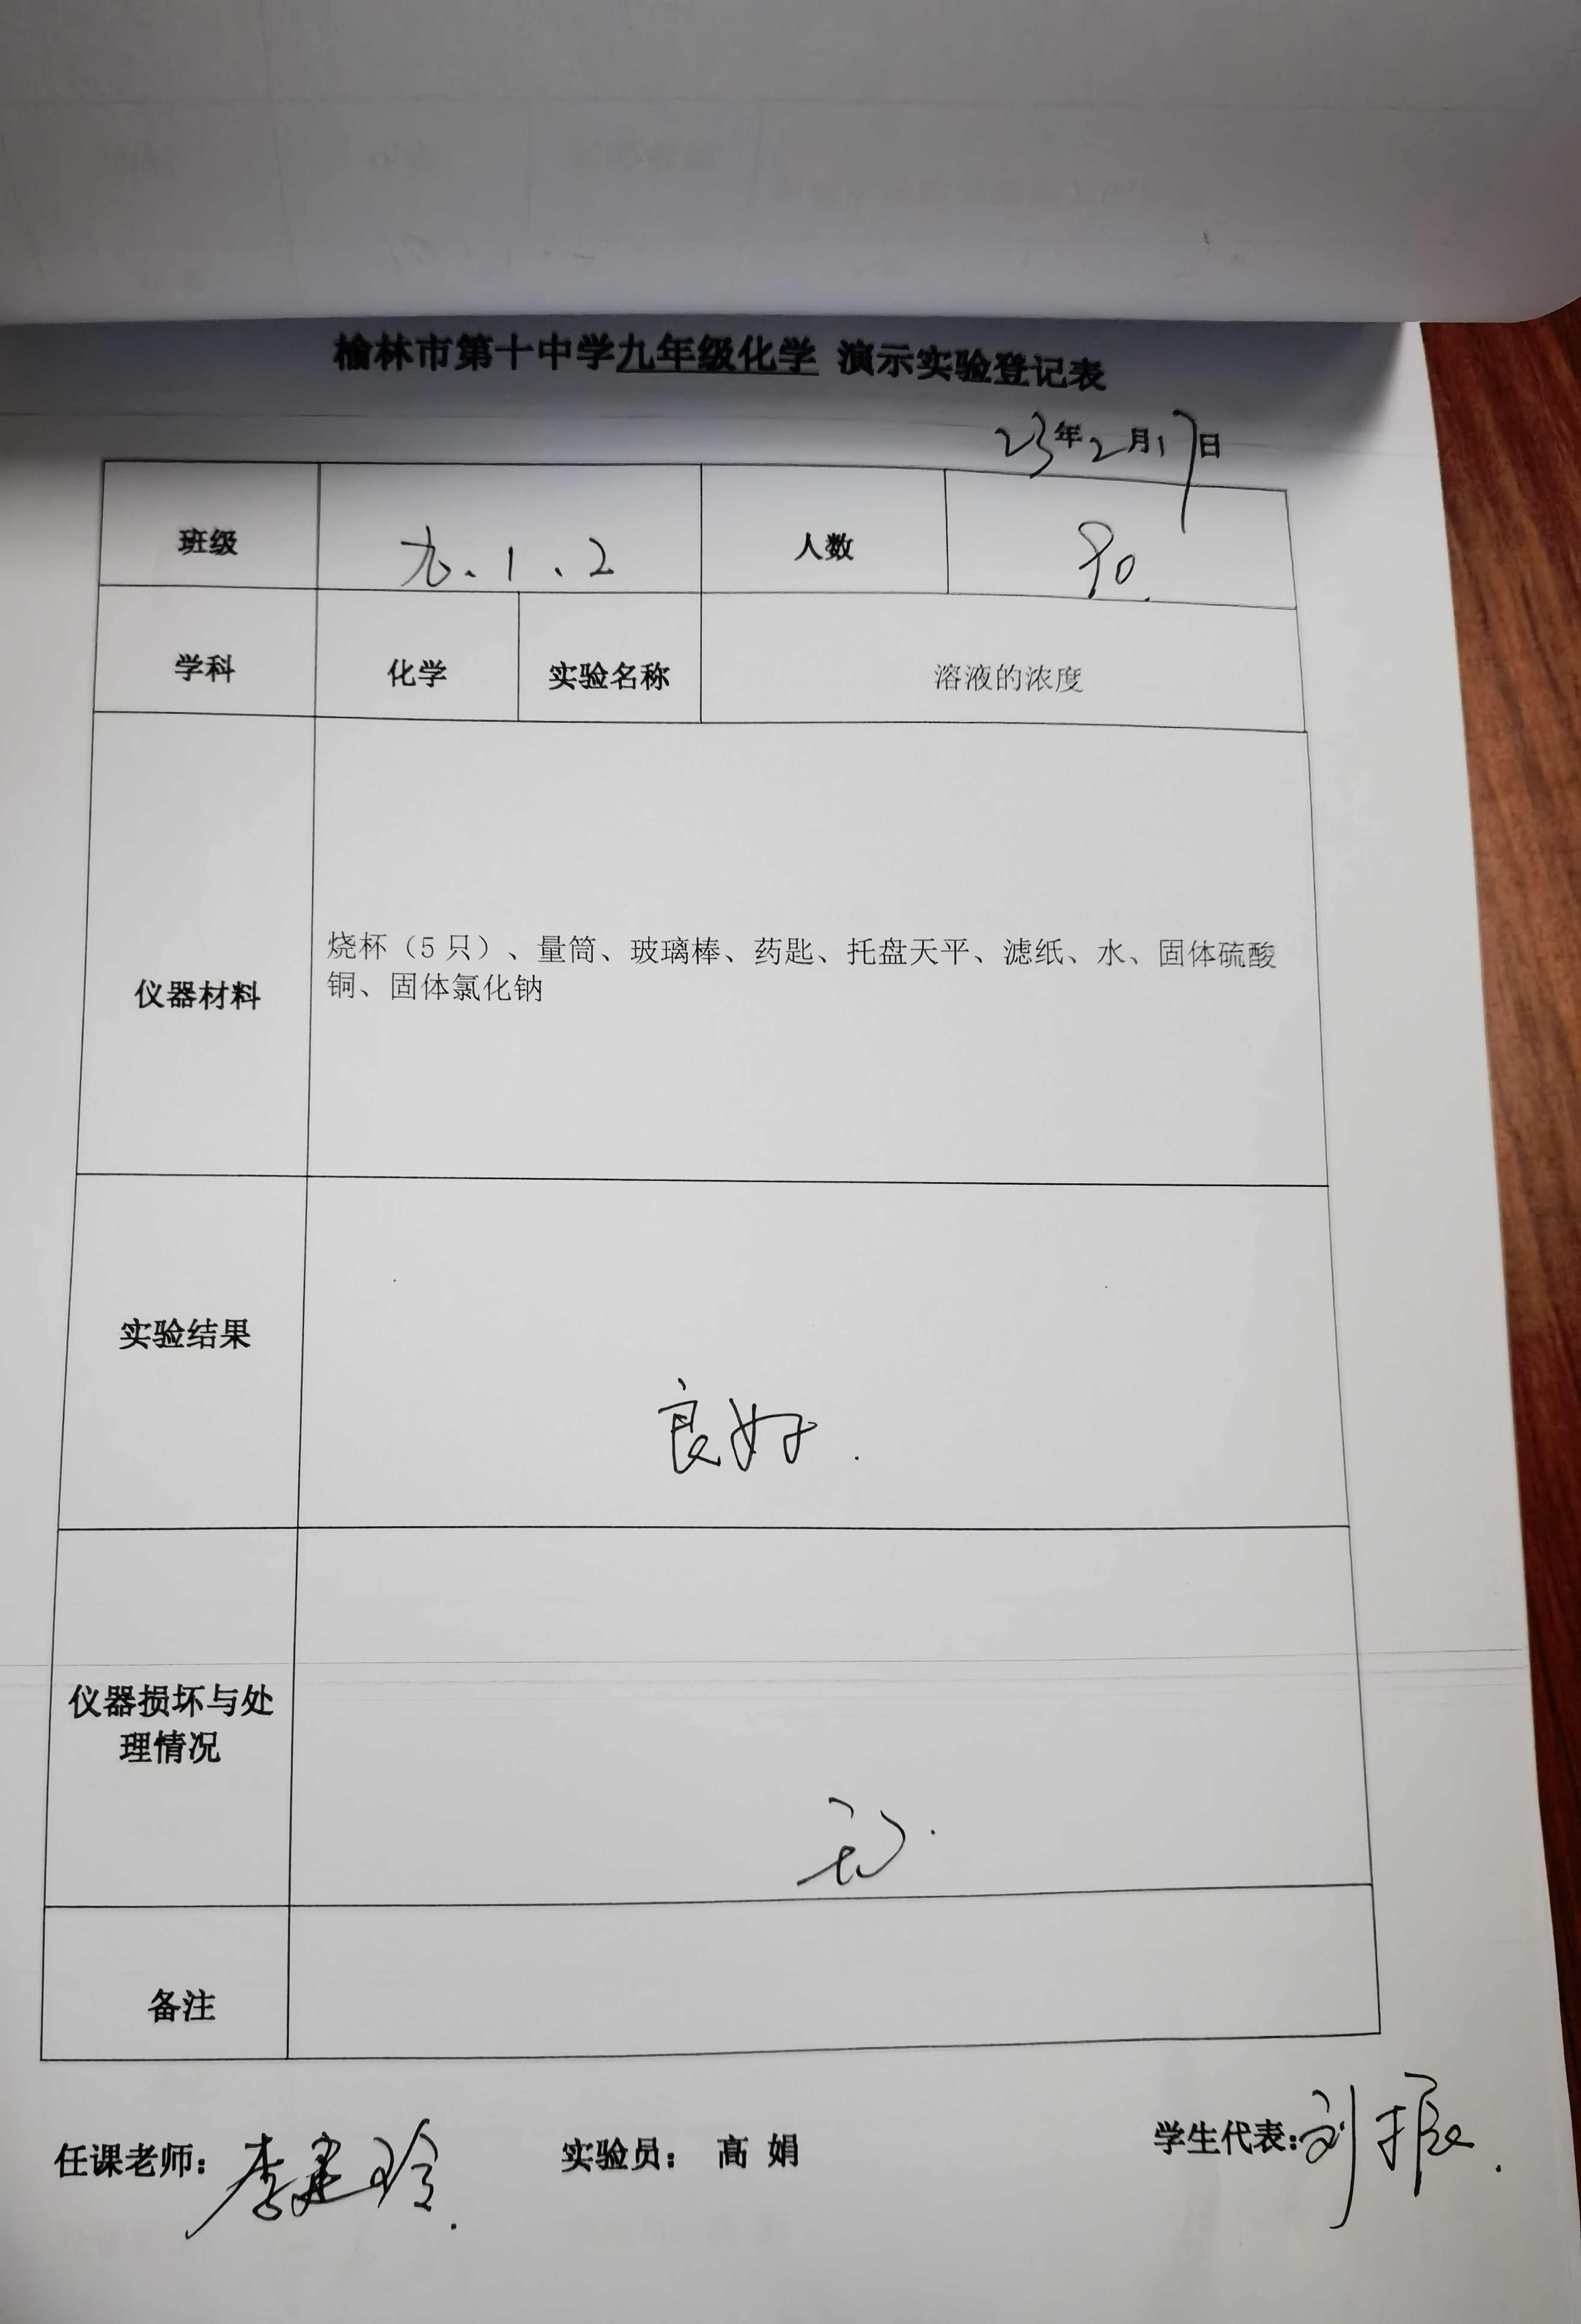 榆林市第十中学九年级化学 演示实验登记表
23年2月17日
班级 九.1.2 人数 90.
学科 化学 实验名称 溶液的浓度
仪器材料
烧杯（5 只）、量筒、玻璃棒、药匙、托盘天平、滤纸、水、固体硫酸
铜、固体氯化钠
实验结果
良好.
仪器损坏与处
理情况
无.
备注
任课老师：李建玲. 实验员： 高 娟 学生代表：刘振.